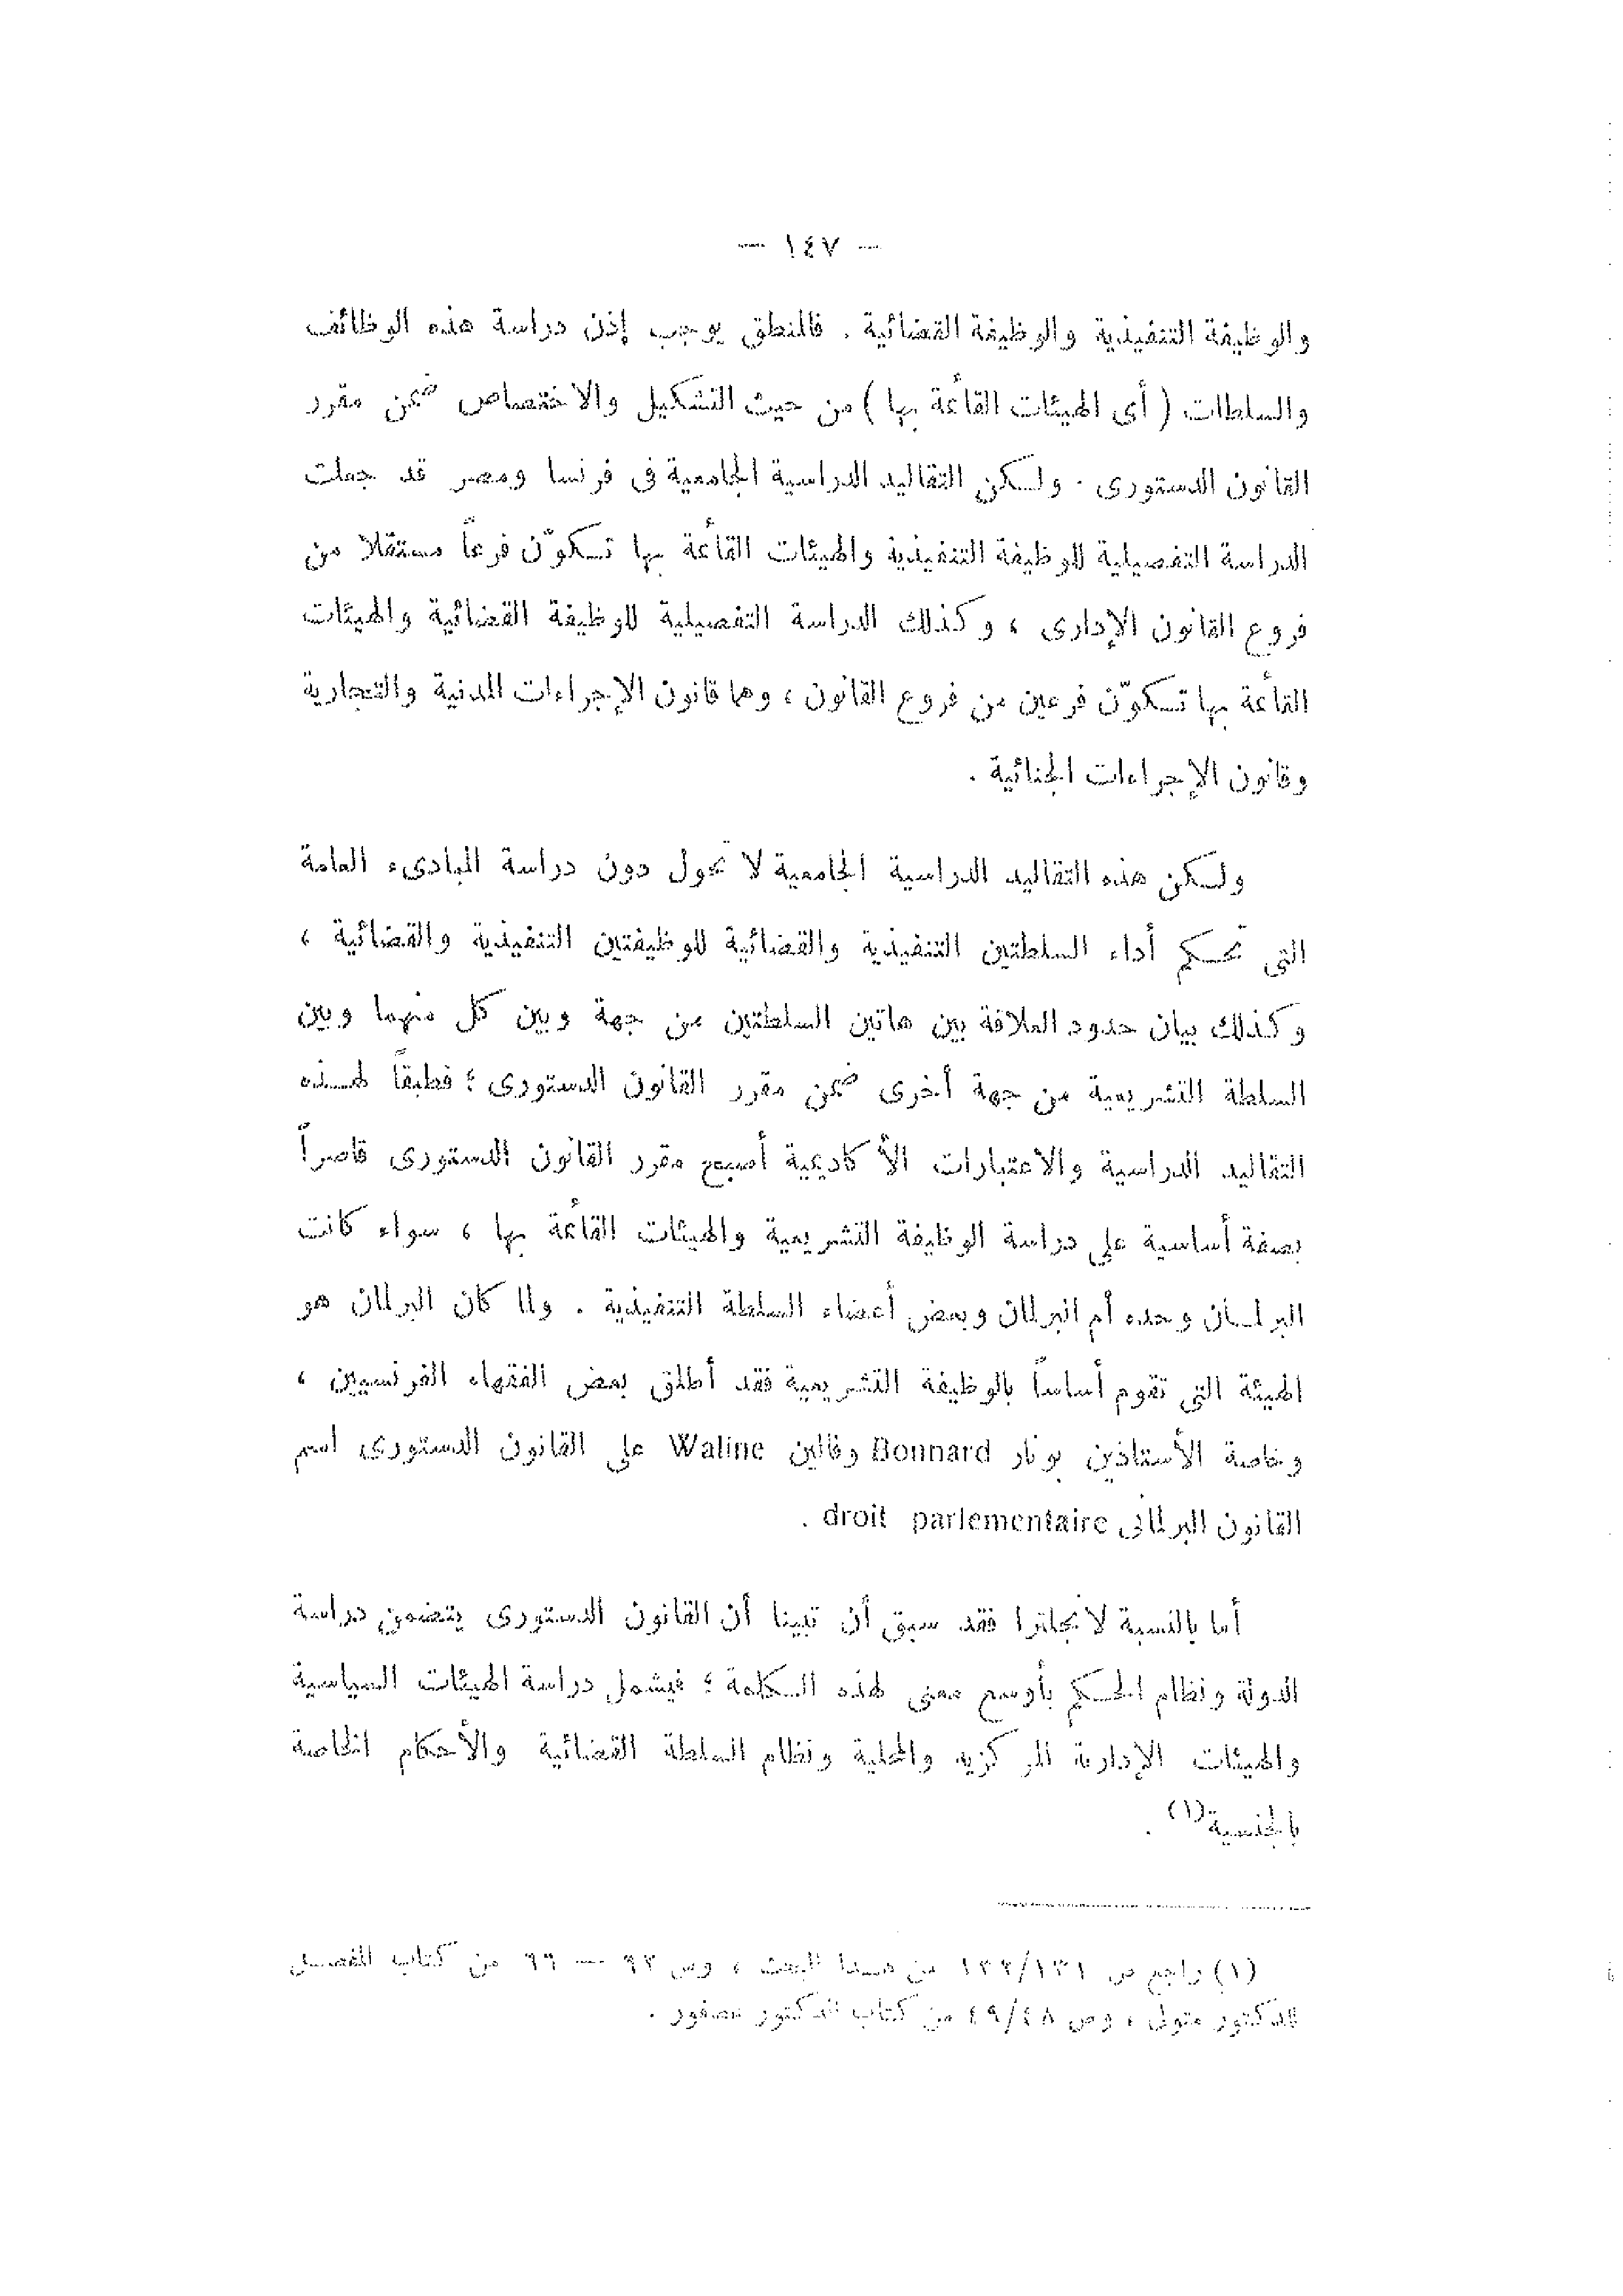 — ١٤٧ —
والوظيفة التنفيذية والوظيفة القضائية . فالمنطق يوجب إذن دراسة هذه الوظائف
والسلطات ( أى الهيئات القائمة بها ) من حيث التشكيل والاختصاص ضمن مقرر
القانون الدستورى . ولكن التقاليد الدراسية الجامعية فى فرنسا ومصر قد جعلت
الدراسة التفصيلية للوظيفة التنفيذية والهيئات القائمة بها تكوّن فرعاً مستقلا من
فروع القانون الإدارى ، وكذلك الدراسة التفصيلية للوظيفة القضائية والهيئات
القائمة بها تكوّن فرعين من فروع القانون ، وهما قانون الإجراءات المدنية والتجارية
وقانون الإجراءات الجنائية .
ولكن هذه التقاليد الدراسية الجامعية لا تحول دون دراسة المبادىء العامة
التى تحكم أداء السلطتين التنفيذية والقضائية للوظيفتين التنفيذية والقضائية ،
وكذلك بيان حدود العلاقة بين هاتين السلطتين من جهة وبين كل منهما وبين
السلطة التشريعية من جهة أخرى ضمن مقرر القانون الدستورى ؛ فطبقاً لهذه
التقاليد الدراسية والاعتبارات الأكاديمية أصبح مقرر القانون الدستورى قاصراً
بصفة أساسية على دراسة الوظيفة التشريعية والهيئات القائمة بها ، سواء كانت
البرلمان وحده أم البرلمان وبعض أعضاء السلطة التنفيذية . ولما كان البرلمان هو
الهيئة التى تقوم أساساً بالوظيفة التشريعية فقد أطلق بعض الفقهاء الفرنسيين ،
وخاصة الأستاذين بونار Bonnard وفالين Waline على القانون الدستورى اسم
القانون البرلمانى droit parlementaire .
أما بالنسبة لانجلترا فقد سبق أن تبينا أن القانون الدستورى يتضمن دراسة
الدولة ونظام الحكم بأوسع معنى لهذه الكلمة ؛ فيشمل دراسة الهيئات السياسية
والهيئات الإدارية المركزيه والمحلية ونظام السلطة القضائية والأحكام الخاصة
بالجنسية (١) .
(١) راجع ص ١٣١/١٣٢ من هذا البحث ، وص ٩٢ — ٩٦ من كتاب المفصل
للدكتور متولى ، وص ٤٩/٤٨ من كتاب الدكتور عصفور .